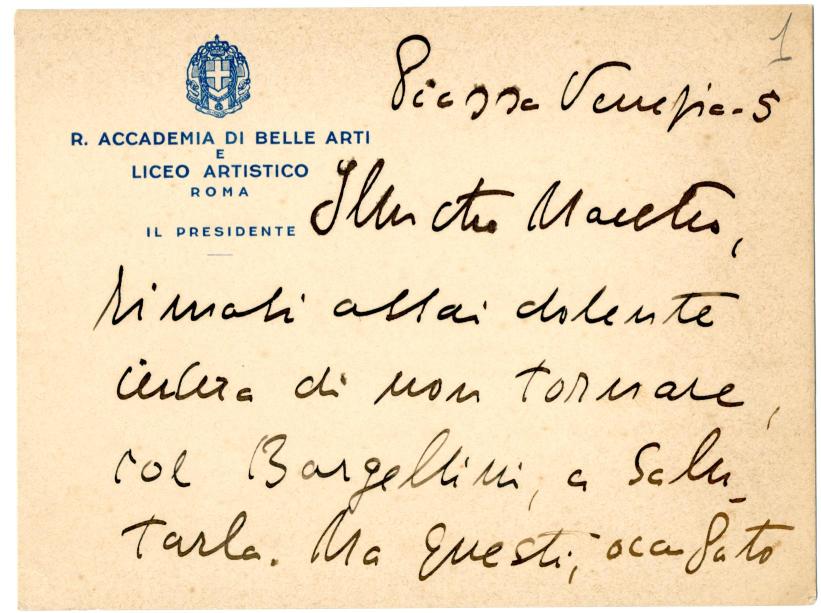 1
Piazza Venezia-5
R. ACCADEMIA DI BELLE ARTI
E
LICEO ARTISTICO
ROMA
IL PRESIDENTE
Illustre Maestro,
Rimasi assai dolente
iersera di non tornare,
col Bargellini, a salu-
tarla. Ma questi, occupato